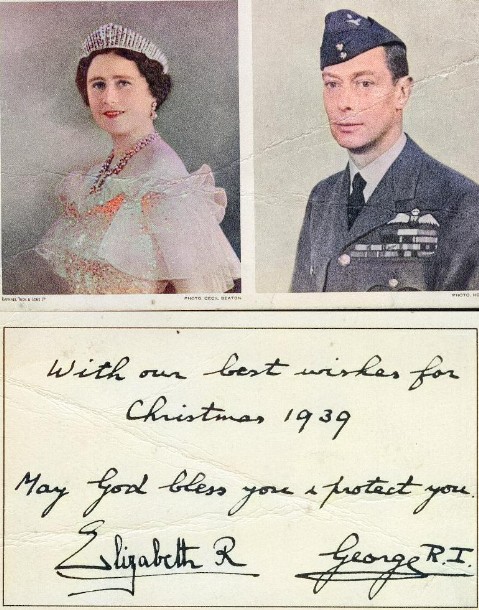 PHOTO. CECIL BEATON
PHOTO.
With our best wishes for
Christmas 1939
May God bless you & protect you.
Elizabeth R
George R.I.